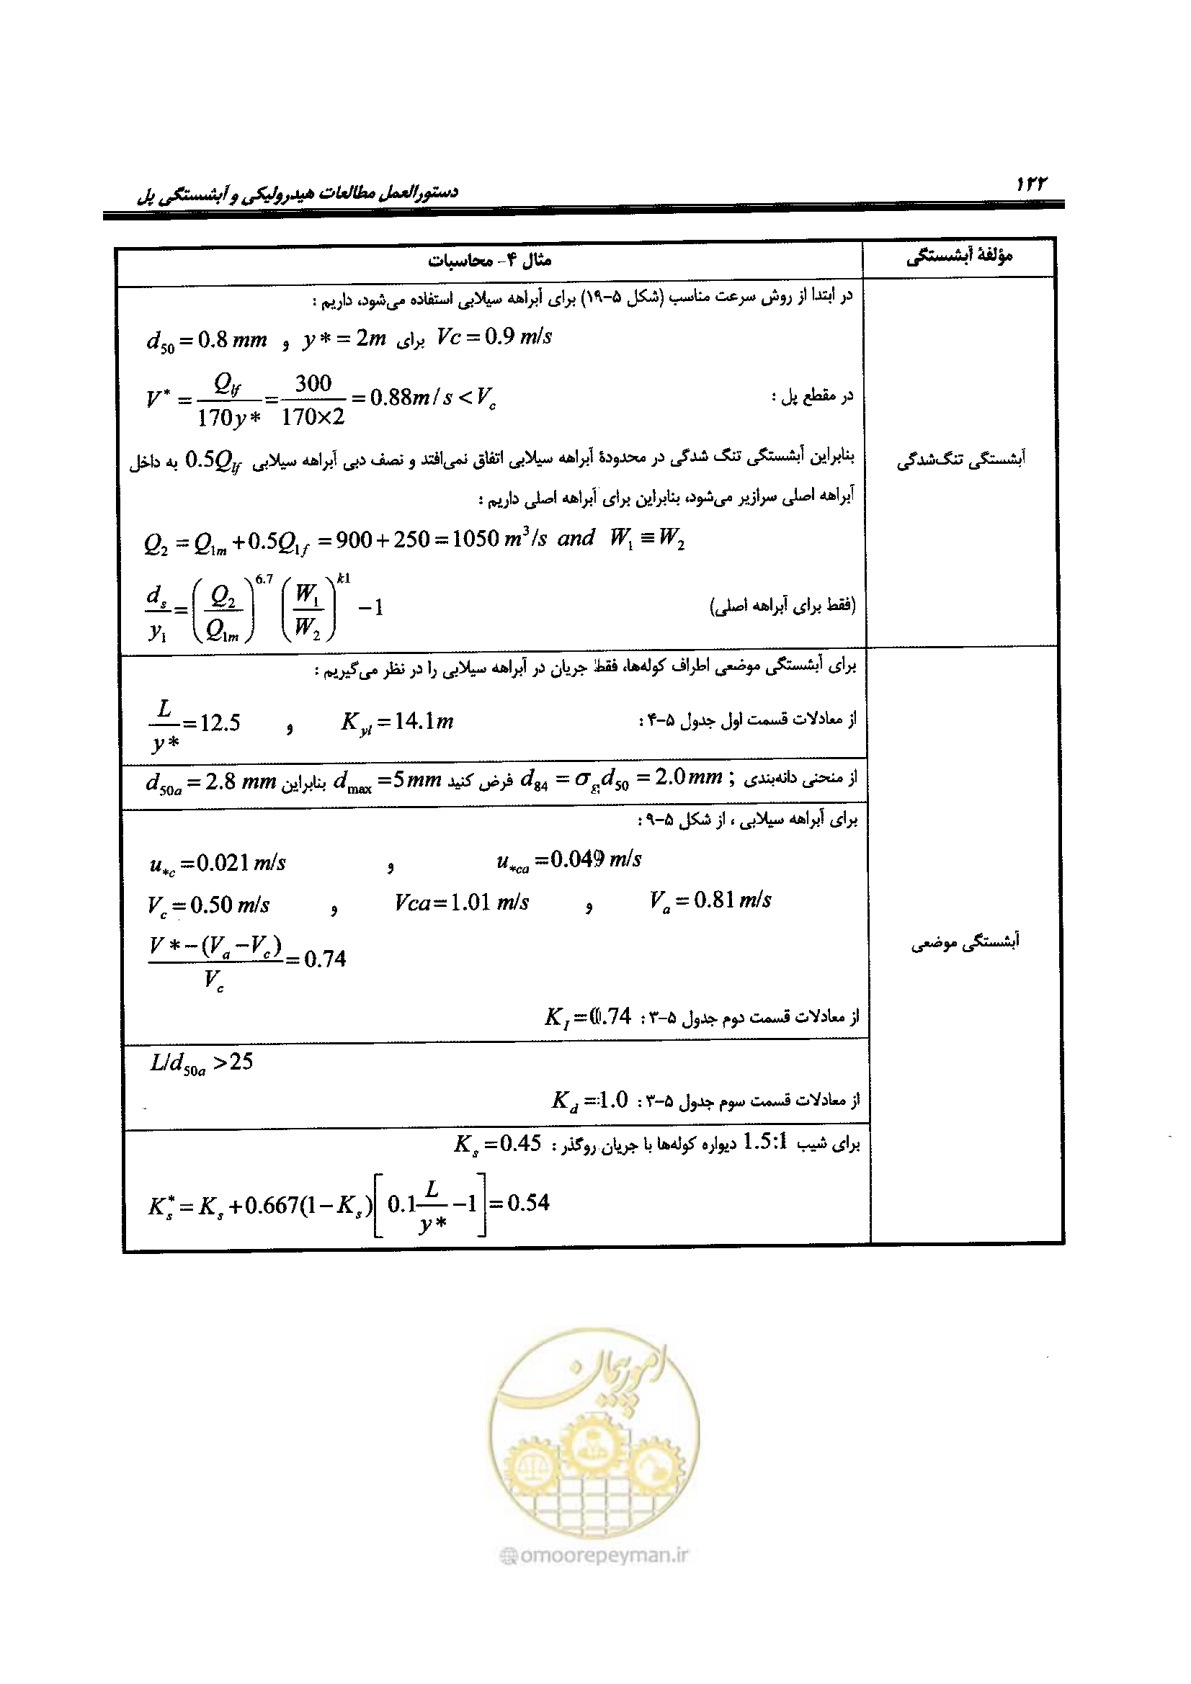 ۱۲۲
دستورالعمل مطالعات هیدرولیکی و آبشستگی پل
مؤلفهٔ آبشستگی
مثال ۴- محاسبات
آبشستگی تنگ‌شدگی
در ابتدا از روش سرعت مناسب (شکل ۵-۱۹) برای آبراهه سیلابی استفاده می‌شود، داریم :
d50 = 0.8 mm و y* = 2m برای Vc = 0.9 m/s
در مقطع پل :
V* = Qlf / 170y* = 300 / 170×2 = 0.88m/s < Vc
بنابراین آبشستگی تنگ شدگی در محدودهٔ آبراهه سیلابی اتفاق نمی‌افتد و نصف دبی آبراهه سیلابی 0.5Qlf به داخل
آبراهه اصلی سرازیر می‌شود، بنابراین برای آبراهه اصلی داریم :
Q2 = Q1m + 0.5Q1f = 900 + 250 = 1050 m³/s and W1 ≡ W2
(فقط برای آبراهه اصلی)
ds/y1 = (Q2/Q1m)^6.7 (W1/W2)^k1 − 1
آبشستگی موضعی
برای آبشستگی موضعی اطراف کوله‌ها، فقط جریان در آبراهه سیلابی را در نظر می‌گیریم :
از معادلات قسمت اول جدول ۵-۴ :
L/y* = 12.5 و Kyl = 14.1m
از منحنی دانه‌بندی ; d84 = σg d50 = 2.0mm فرض کنید dmax = 5mm بنابراین d50a = 2.8 mm
برای آبراهه سیلابی ، از شکل ۵-۹ :
u*c = 0.021 m/s و u*ca = 0.049 m/s
Vc = 0.50 m/s و Vca = 1.01 m/s و Va = 0.81 m/s
V* − (Va − Vc) / Vc = 0.74
از معادلات قسمت دوم جدول ۵-۳ : KI = 0.74
L/d50a > 25
از معادلات قسمت سوم جدول ۵-۳ : Kd = 1.0
برای شیب 1.5:1 دیواره کوله‌ها با جریان روگذر : Ks = 0.45
Ks* = Ks + 0.667(1 − Ks)[0.1 L/y* − 1] = 0.54
امور پیمان
@omoorepeyman.ir